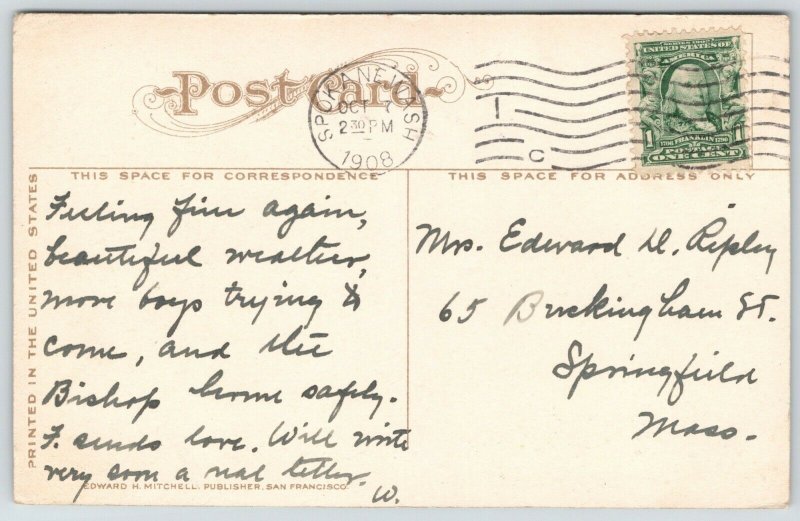 Post Card
SPOKANE WASH
OCT 7
2 30 PM
1908
1
C
SERIES 1902
UNITED STATES OF
AMERICA
1
1706 FRANKLIN 1790
POSTAGE
ONE CENT
THIS SPACE FOR CORRESPONDENCE
THIS SPACE FOR ADDRESS ONLY
PRINTED IN THE UNITED STATES
Feeling fine again,
beautiful weather,
more boys trying to
come, and the
Bishop home safely.
F. sends love. Will write
very soon a real letter.
W.
Mrs. Edward D. Ripley
65 Buckingham St.
Springfield
Mass.
EDWARD H. MITCHELL, PUBLISHER, SAN FRANCISCO